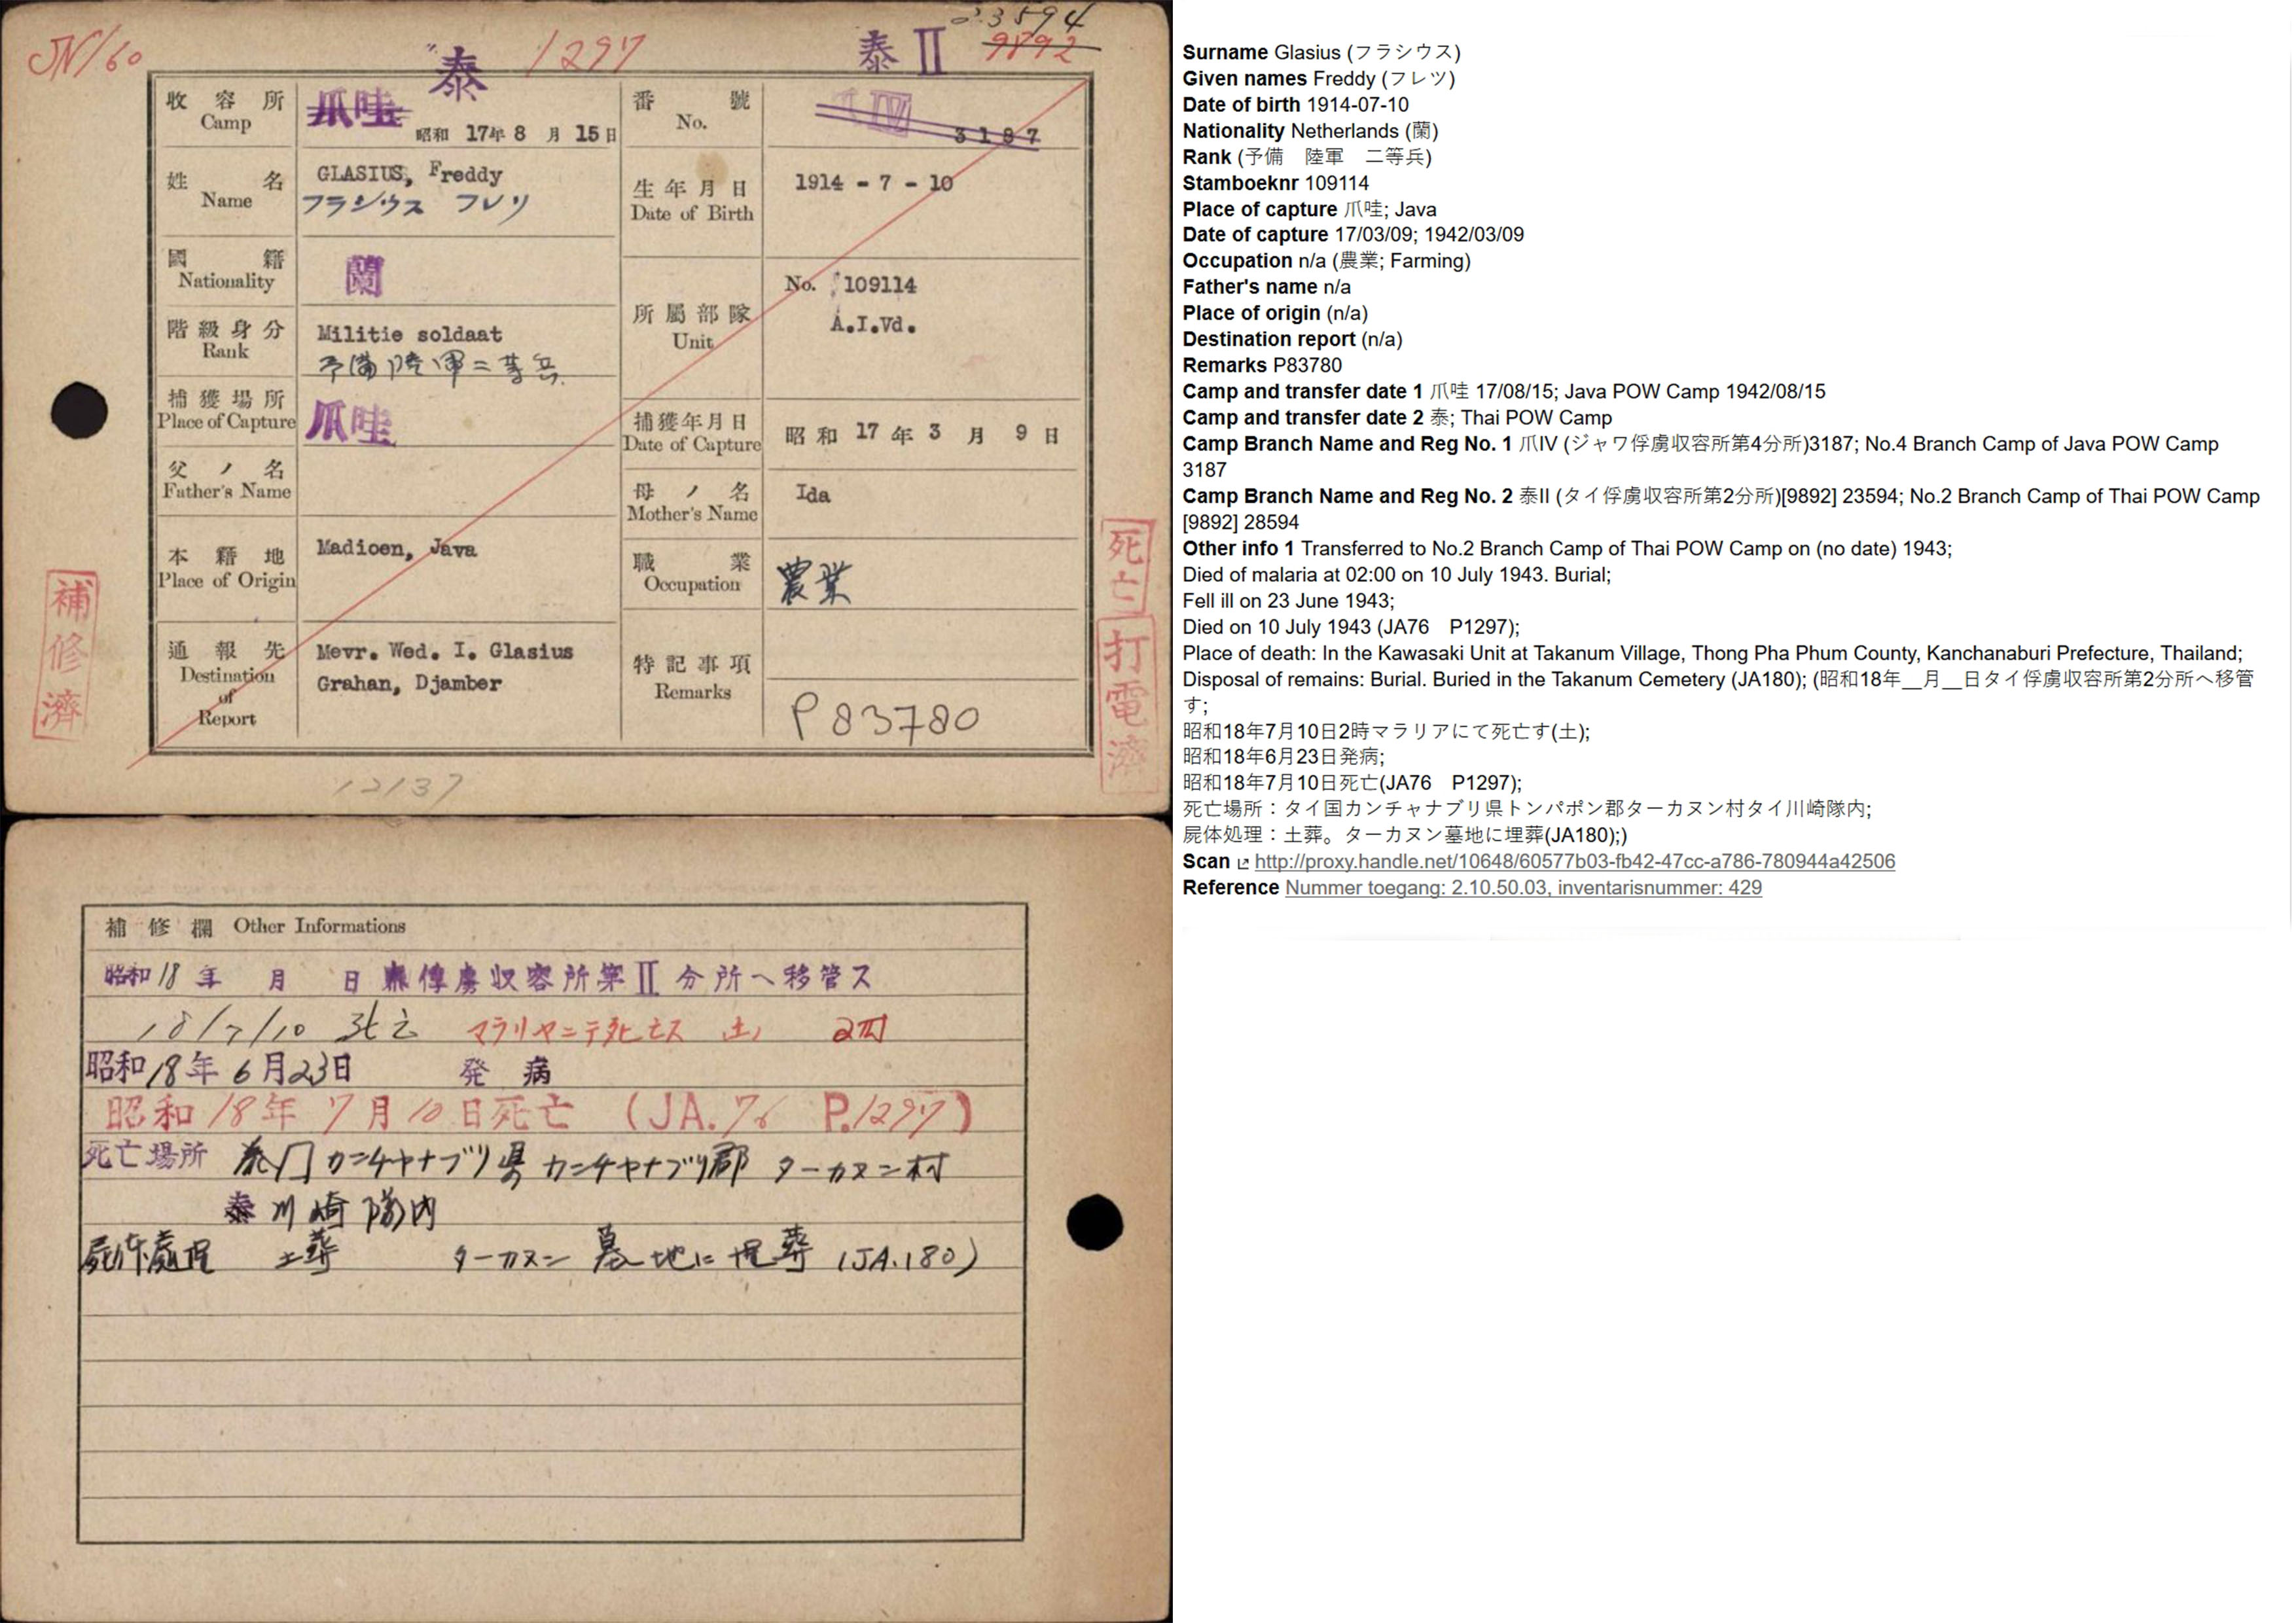 JN/60
泰
1297
泰 II
23594
9892
收容所
Camp
爪哇
昭和 17年 8 月 15日
番號
No.
IV
3187
姓名
Name
GLASIUS, Freddy
フラシウス フレツ
生年月日
Date of Birth
1914 - 7 - 10
國籍
Nationality
蘭
階級身分
Rank
Militie soldaat
予備陸軍二等兵
所屬部隊
Unit
No. 109114
A.I.Vd.
捕獲場所
Place of Capture
爪哇
捕獲年月日
Date of Capture
昭和 17 年 3 月 9 日
父ノ名
Father's Name
母ノ名
Mother's Name
Ida
本籍地
Place of Origin
Madioen, Java
職業
Occupation
農業
通報先
Destination
of
Report
Mevr. Wed. I. Glasius
Grahan, Djamber
特記事項
Remarks
P83780
補修濟
死亡
打電濟
12137
補修欄 Other Informations
昭和18年 月 日 泰俘虜収容所第II分所へ移管ス
18/7/10 死亡 マラリヤニテ死亡ス 土 2時
昭和18年6月23日 発病
昭和18年7月10日死亡 (JA.76 P.1297)
死亡場所 泰国カンチヤナブリ県カンチヤナブリ郡 ターカヌン村
泰川崎隊内
屍体處理 土葬 ターカヌン墓地に埋葬 (JA.180)
Surname Glasius (フラシウス)
Given names Freddy (フレツ)
Date of birth 1914-07-10
Nationality Netherlands (蘭)
Rank (予備 陸軍 二等兵)
Stamboeknr 109114
Place of capture 爪哇; Java
Date of capture 17/03/09; 1942/03/09
Occupation n/a (農業; Farming)
Father's name n/a
Place of origin (n/a)
Destination report (n/a)
Remarks P83780
Camp and transfer date 1 爪哇 17/08/15; Java POW Camp 1942/08/15
Camp and transfer date 2 泰; Thai POW Camp
Camp Branch Name and Reg No. 1 爪IV (ジャワ俘虜収容所第4分所)3187; No.4 Branch Camp of Java POW Camp
3187
Camp Branch Name and Reg No. 2 泰II (タイ俘虜収容所第2分所)[9892] 23594; No.2 Branch Camp of Thai POW Camp
[9892] 28594
Other info 1 Transferred to No.2 Branch Camp of Thai POW Camp on (no date) 1943;
Died of malaria at 02:00 on 10 July 1943. Burial;
Fell ill on 23 June 1943;
Died on 10 July 1943 (JA76 P1297);
Place of death: In the Kawasaki Unit at Takanum Village, Thong Pha Phum County, Kanchanaburi Prefecture, Thailand;
Disposal of remains: Burial. Buried in the Takanum Cemetery (JA180); (昭和18年__月__日タイ俘虜収容所第2分所へ移管
す;
昭和18年7月10日2時マラリアにて死亡す(土);
昭和18年6月23日発病;
昭和18年7月10日死亡(JA76 P1297);
死亡場所：タイ国カンチャナブリ県トンパポン郡ターカヌン村タイ川崎隊内;
屍体処理：土葬。ターカヌン墓地に埋葬(JA180);)
Scan http://proxy.handle.net/10648/60577b03-fb42-47cc-a786-780944a42506
Reference Nummer toegang: 2.10.50.03, inventarisnummer: 429